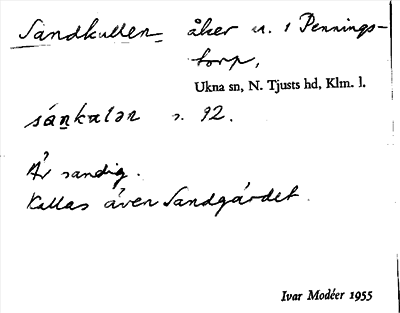 Sandkullen åker u. 1 Pennings-
torp,
Ukna sn, N. Tjusts hd, Klm. l.
sánkalən s. 92.
Är sandig.
Kallas även Sandgärdet.
Ivar Modéer 1955